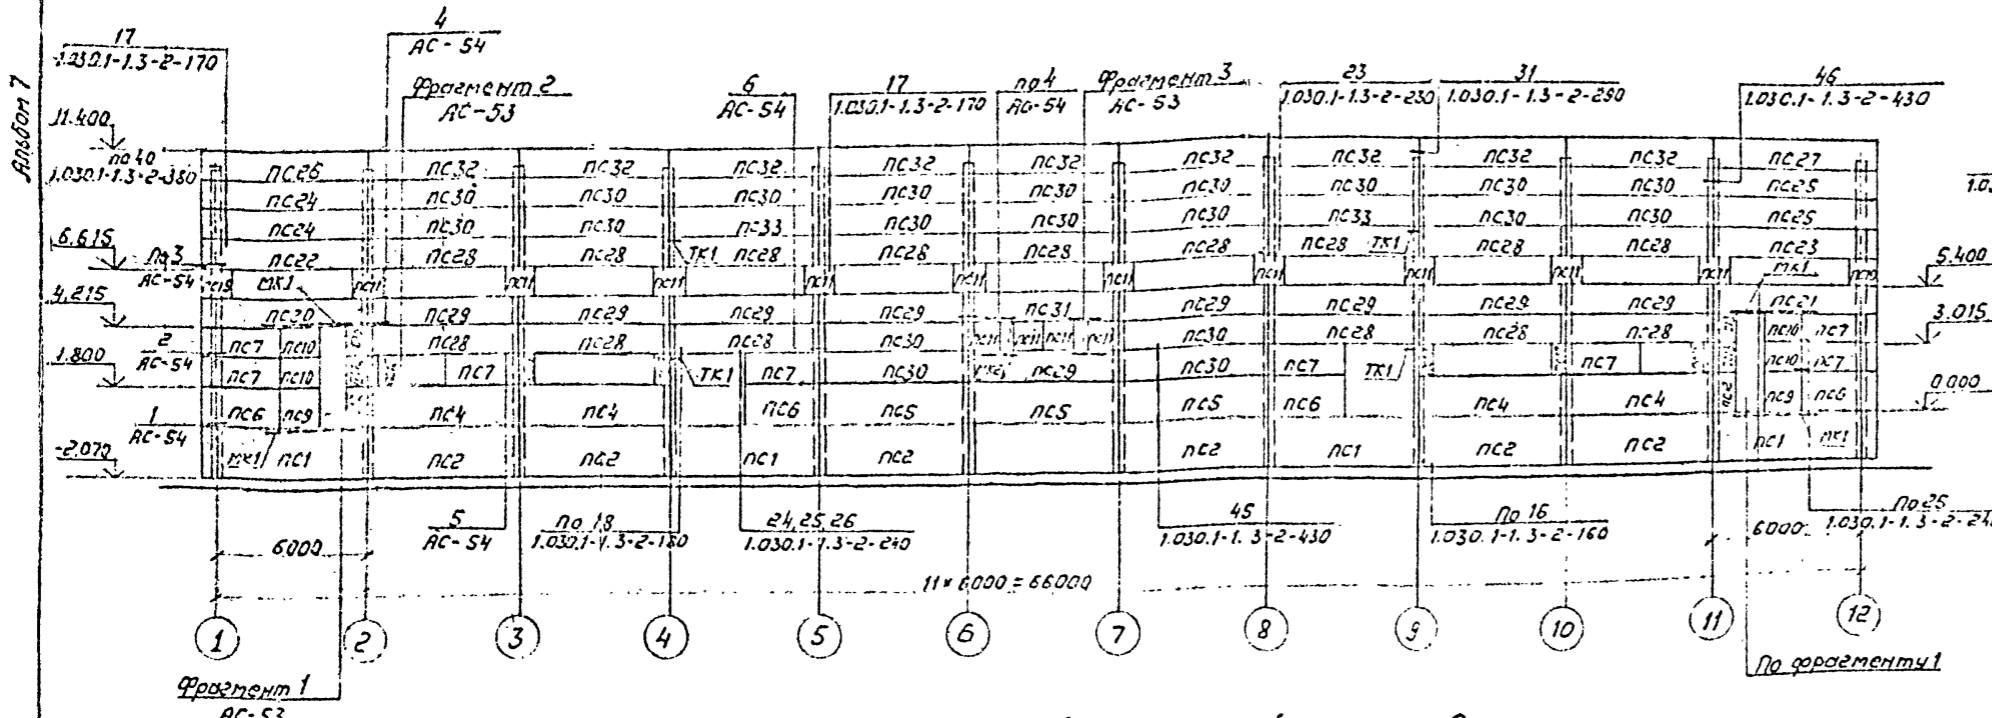 Альбом 7
17
1.030.1-1.3-2-170
4
АС-54
Фрагмент 2
АС-53
6
АС-54
17
1.030.1-1.3-2-170
по 4
АС-54
Фрагмент 3
АС-53
23
1.030.1-1.3-2-230
31
1.030.1-1.3-2-290
46
1.030.1-1.3-2-430
11.400
по 40
1.030.1-1.3-2-380
ПС26 ПС32 ПС32 ПС32 ПС32 ПС32 ПС32 ПС32 ПС32 ПС32 ПС27
ПС24 ПС30 ПС30 ПС30 ПС30 ПС30 ПС30 ПС30 ПС30 ПС30 ПС25
ПС24 ПС30 ПС30 ПС33 ПС30 ПС30 ПС30 ПС33 ПС30 ПС30 ПС25
6.615
ПС22 ПС28 ПС28 ТК1 ПС28 ПС28 ПС28 ПС28 ПС28 ТК1 ПС28 ПС28 ПС23
по 3
АС-54
МК1 ПС11 ПС11 ПС11 ПС11 ПС11 ПС11 ПС11 ПС11 ПС11 ПС11 МК1
5.400
4.215
ПС20 ПС29 ПС29 ПС29 ПС29 ПС31 ПС29 ПС29 ПС29 ПС29 ПС21
3.015
2
АС-54
ПС7 ПС10 ПС28 ПС28 ПС28 ПС30 ПС11 ПС11 ПС11 ПС11 ПС30 ПС28 ПС28 ПС28 ПС10 ПС7
1.800
ПС7 ПС10 ПС7 ТК1 ПС7 ПС30 ПС29 ПС30 ПС7 ТК1 ПС7 ПС10 ПС7
0.000
1
АС-54
ПС6 ПС9 ПС4 ПС4 ПС6 ПС5 ПС5 ПС5 ПС6 ПС4 ПС4 ПС9 ПС6
-2.070
МК1 ПС1 ПС2 ПС2 ПС1 ПС2 ПС2 ПС1 ПС2 ПС2 ПС1 МК1
5
АС-54
По 18
1.030.1-1.3-2-180
24,25,26
1.030.1-1.3-2-240
45
1.030.1-1.3-2-430
По 16
1.030.1-1.3-2-160
По 25
6000
6000
11×6000=66000
1 2 3 4 5 6 7 8 9 10 11 12
Фрагмент 1
АС-53
По фрагменту 1